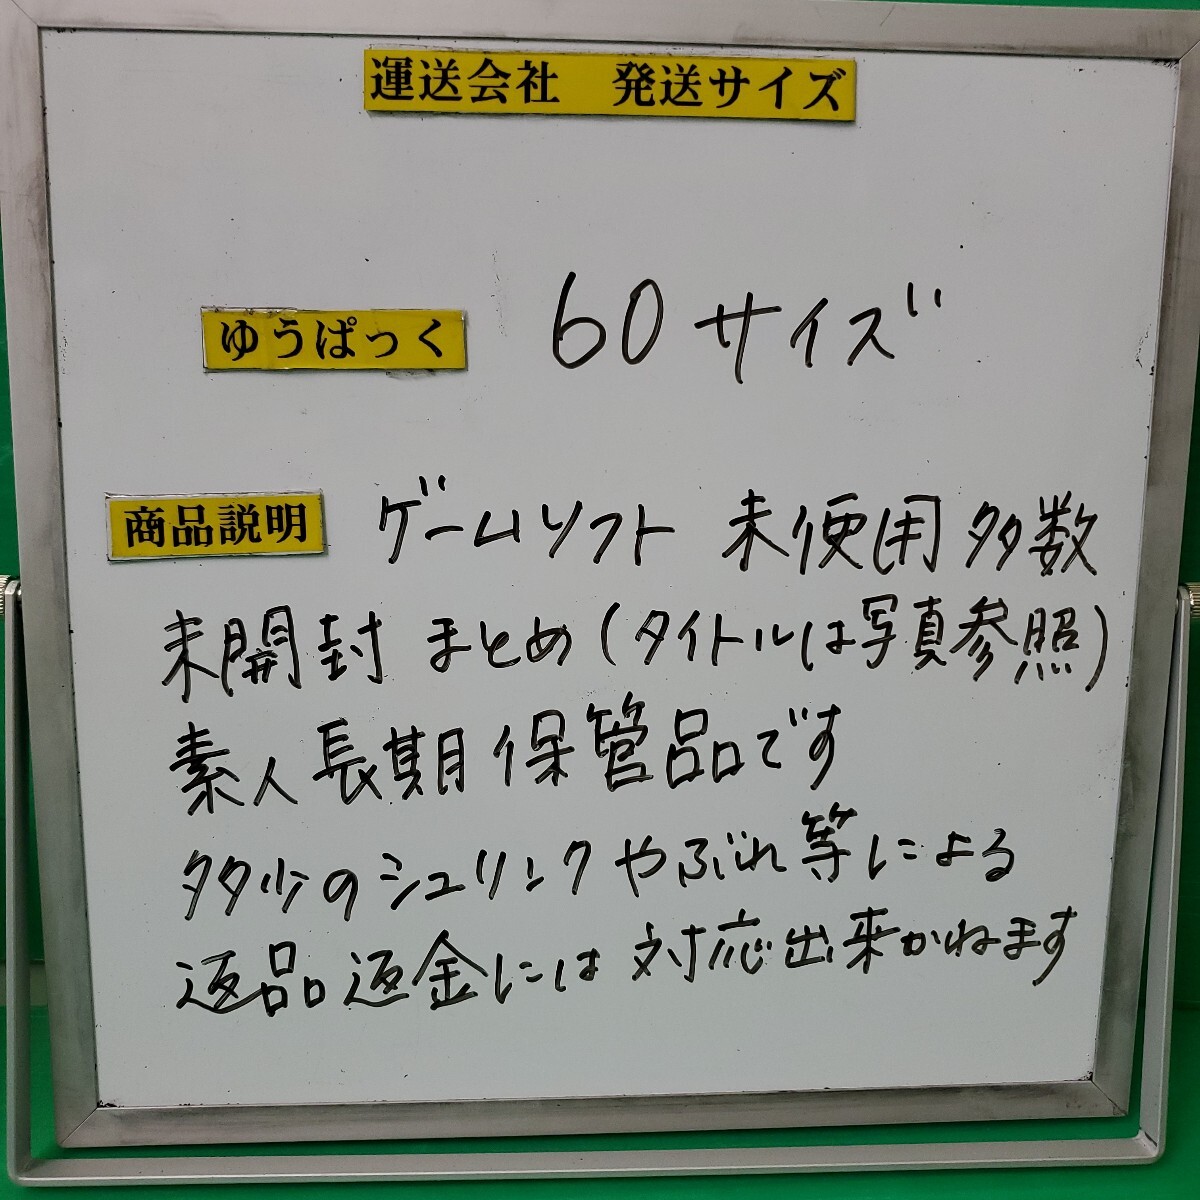 運送会社　発送サイズ
ゆうぱっく 60サイズ
商品説明 ゲームソフト 未使用多数
未開封 まとめ(タイトルは写真参照)
素人長期保管品です
多少のシュリンクやぶれ等による
返品返金には対応出来かねます